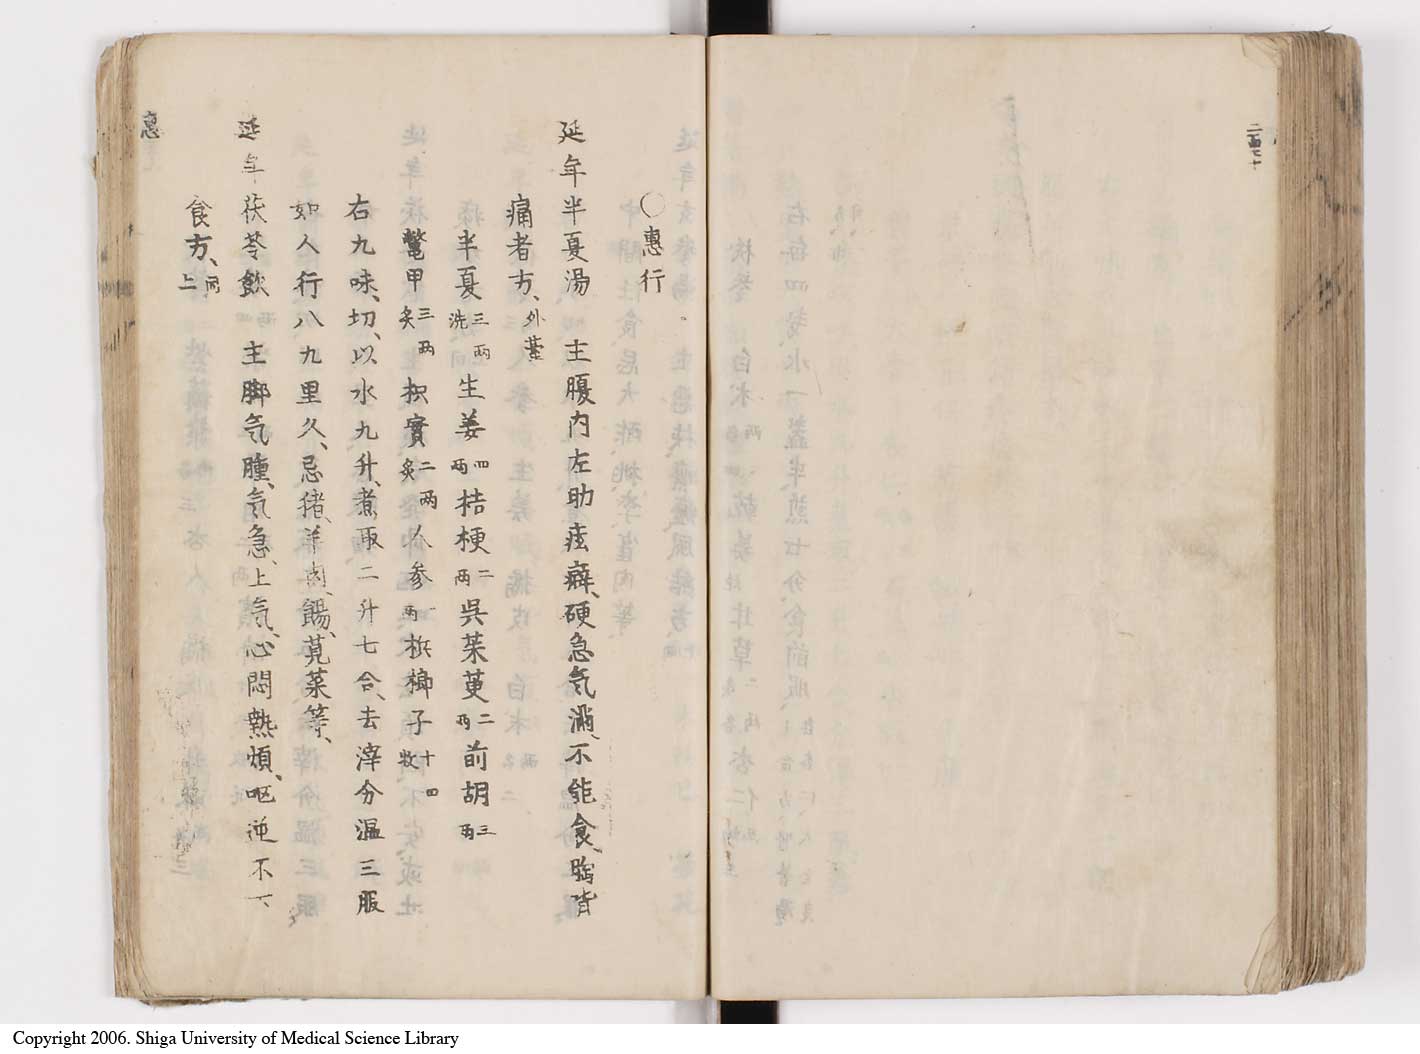 二百七十
〇惠行
延年半夏湯 主腹内左肋痃癖、硬急気満、不能食、胸背
痛者方、外臺
半夏三兩洗 生姜四兩 桔梗二兩 呉茱萸二兩 前胡三兩
鼈甲三兩炙 枳實二兩炙 人参一兩 梹榔子十四枚
右九味、切、以水九升、煮取二升七合、去滓分温三服
如人行八九里久、忌猪、羊肉、餳、莧菜等、
延年茯苓飲 主脚気腫、気急、上気、心悶熱煩、嘔逆不下
食方、同上
惠
Copyright 2006. Shiga University of Medical Science Library